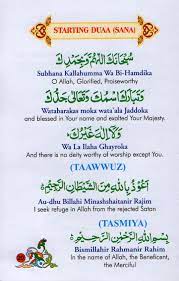 STARTING DUAA (SANA)
سُبْحَانَكَ اللَّهُمَّ وَبِحَمْدِكَ
Subhana Kallahumma Wa Bi-Hamdika
O Allah, Glorified, Praiseworthy
وَتَبَارَكَ اسْمُكَ وَتَعَالَى جَدُّكَ
Watabarakas moka wata'ala Jaddoka
and blessed in Your name and exalted Your Majesty.
وَلَا إِلَهَ غَيْرُكَ
Wa La Ilaha Ghayroka
And there is no deity worthy of worship except You.
(TAAWWUZ)
أَعُوذُ بِاللَّهِ مِنَ الشَّيْطَانِ الرَّجِيمِ
Au-dhu Billahi Minashshaitanir Rajim
I seek refuge in Allah from the rejected Satan
(TASMIYA)
بِسْمِ اللَّهِ الرَّحْمَنِ الرَّحِيمِ
Bismillahir Rahmanir Rahim
In the name of Allah, the Beneficent,
the Merciful